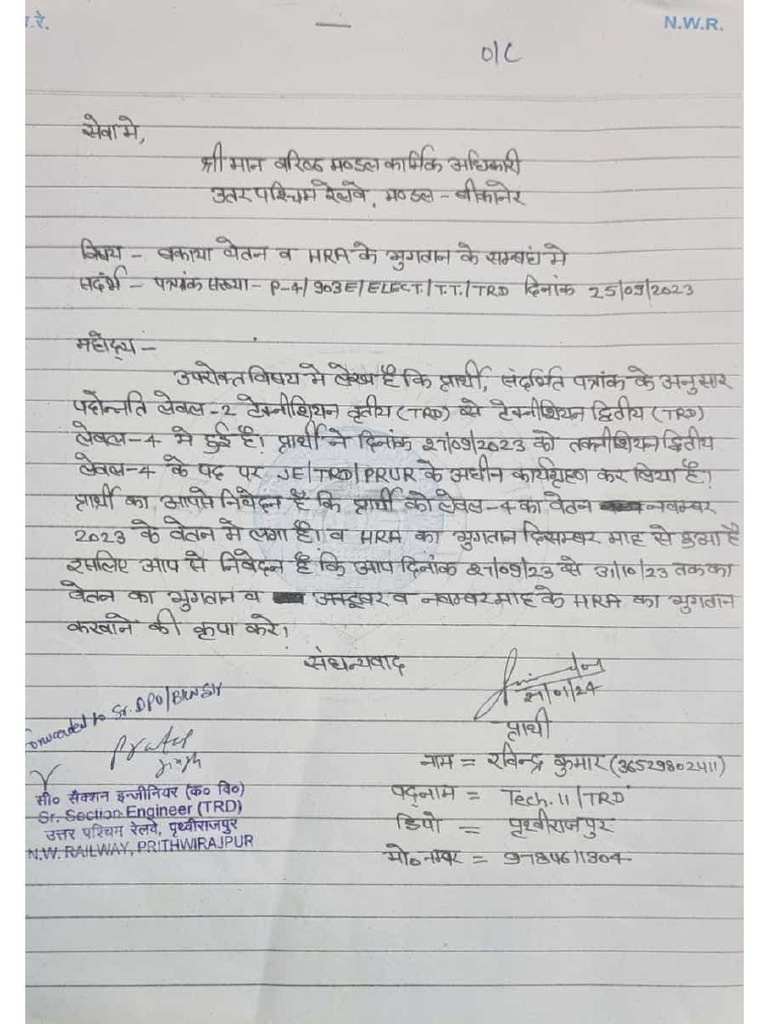 .रे.
N.W.R.
O/C
सेवा मे,
श्री मान वरिष्ठ मण्डल कार्मिक अधिकारी
उतर पश्चिम रेलवे, मण्डल - बीकानेर
विषय - बकाया वेतन व HRA के भुगतान के सम्बधं मे
सदंर्भ - पत्रांक संख्या - P-4/903E/ELECT/T.T./TRD दिनांक 25/09/2023
महोदय -
उपरोक्त विषय मे लेख है कि प्रार्थी, संदर्भित पत्रांक के अनुसार
पदोन्नति लेवल-2 टेक्नीशियन तृतीय (TRD) से टेक्नीशियन द्वितीय (TRD)
लेवल-4 मे हुई है। प्रार्थी ने दिनांक 27/09/2023 को तकनीशियन द्वितीय
लेवल-4 के पद पर JE/TRD/PRUR के अधीन कार्यग्रहण कर लिया है।
प्रार्थी का आपसे निवेदन है कि प्रार्थी को लेवल-4 का वेतन नवम्बर
2023 के वेतन मे लगा है। व HRA का भुगतान दिसम्बर माह से हुआ है
इसलिए आप से निवेदन है कि आप दिनांक 27/09/23 से 31/10/23 तक का
वेतन का भुगतान व अक्टूबर व नवम्बर माह के HRA का भुगतान
करवाने की कृपा करे।
संधन्यवाद
29/01/24
प्रार्थी
Forwarded to Sr. DPO/BKN
Pratap
Singh
नाम = रविन्द्र कुमार (36529802411)
पद्नाम = Tech. II / TRD
डिपो = पृथ्वीराजपुर
मो० नम्बर = 9784611304
सी० सैक्शन इन्जीनियर (क० वि०)
Sr. Section Engineer (TRD)
उत्तर परिचम रेलवे, पृथ्वीराजपुर
N.W. RAILWAY, PRITHWIRAJPUR